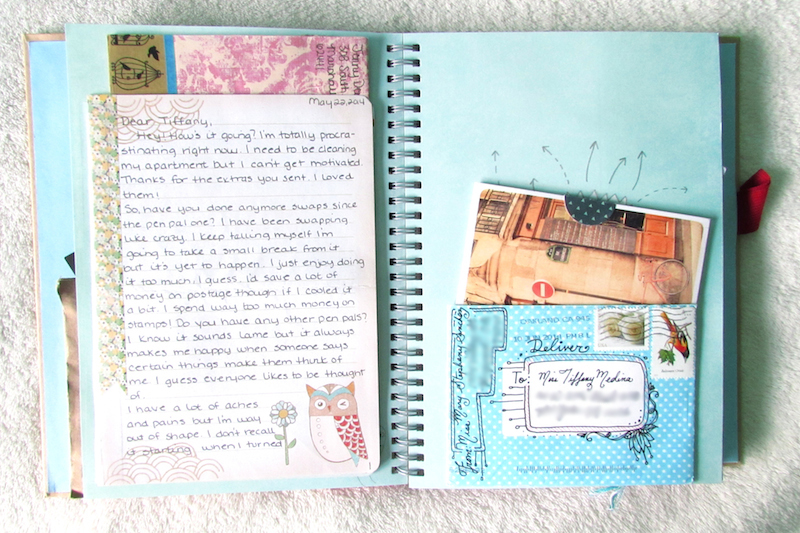 May 22, 2014
Dear Tiffany,
Hey! How's it going? I'm totally procra-
stinating right now. I need to be cleaning
my apartment but I can't get motivated.
Thanks for the extras you sent. I loved
them!
So, have you done anymore swaps since
the pen pal one? I have been swapping
like crazy. I keep telling myself I'm
going to take a small break from it
but it's yet to happen. I just enjoy doing
it too much, I guess. I'd save a lot of
money on postage though if I cooled it
a bit. I spend way too much money on
stamps! Do you have any other pen pals?
I know it sounds lame but it always
makes me happy when someone says
certain things make them think of
me. I guess everyone likes to be thought
of.
I have a lot of aches
and pains but I'm way
out of shape. I don't recall
is starting when I turned
From: Miss Mary Stephany
OAKLAND CA 945
Deliver
To: Miss Tiffany Medina